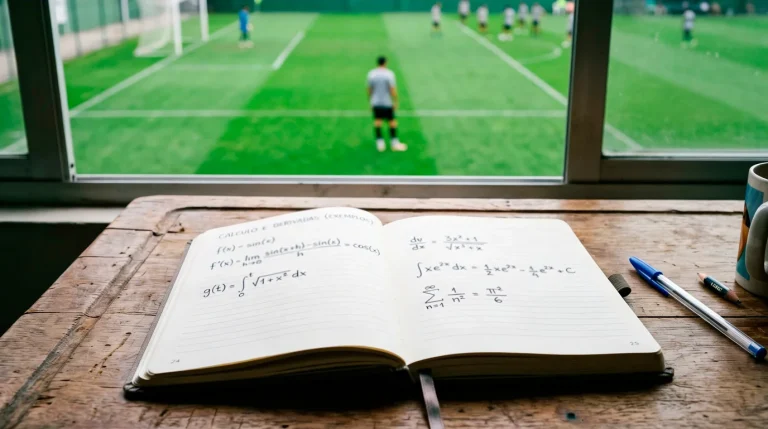 CALCULO E DERIVADAS (EXEMPLOS)
f(x) = sin(x)
f'(x) = lim h→0 sin(x+h) - sin(x) / h = cos(x)
g(t) = ∫₀ᵗ √(1+x²) dx
24
dy/dx = 3x²+1 / √(x²+x)
∫xe²ˣ dx = 1/2 xe²ˣ - 1/4 e²ˣ + C
∑ n=1 ∞ 1/n² = π²/6
25